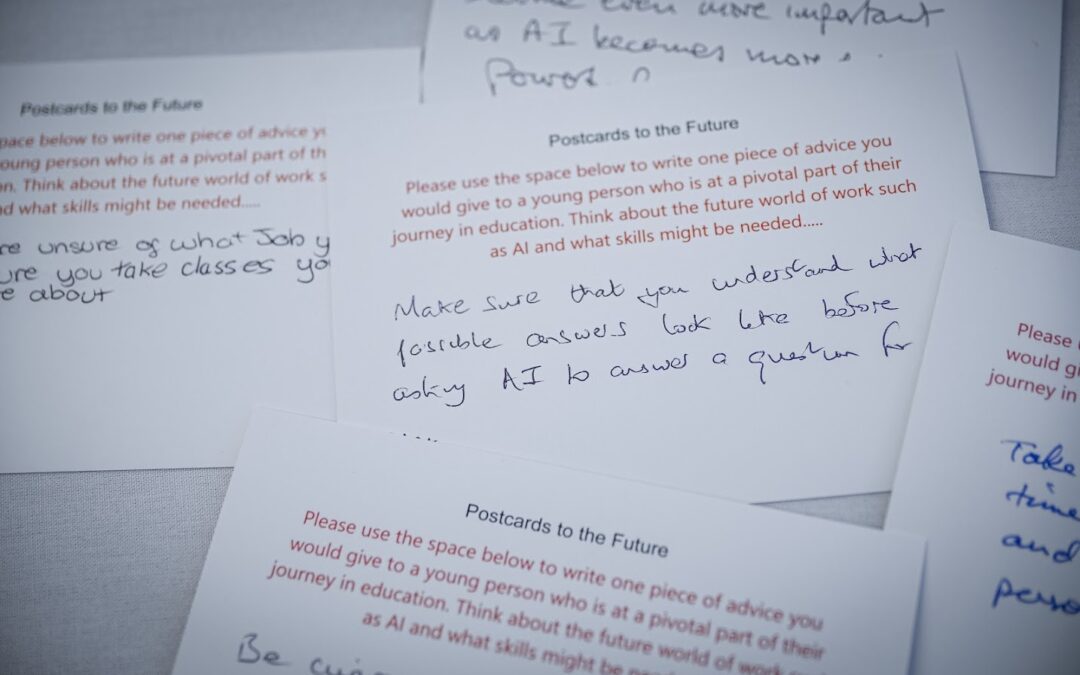 even more important
as AI becomes more
Postcards to the Future
pace below to write one piece of advice
oung person who is at a pivotal part of th
n. Think about the future world of work s
d what skills might be needed.....
re unsure of what Job y
ure you take classes yo
e about
Postcards to the Future
Please use the space below to write one piece of advice you
would give to a young person who is at a pivotal part of their
journey in education. Think about the future world of work such
as AI and what skills might be needed.....
Make sure that you understand what
possible answers look like before
asking AI to answer a question for
Please
would gi
journey in
Take
time
and
perso
Postcards to the Future
Please use the space below to write one piece of advice you
would give to a young person who is at a pivotal part of their
journey in education. Think about the future world of work
as AI and what skills might be
Be